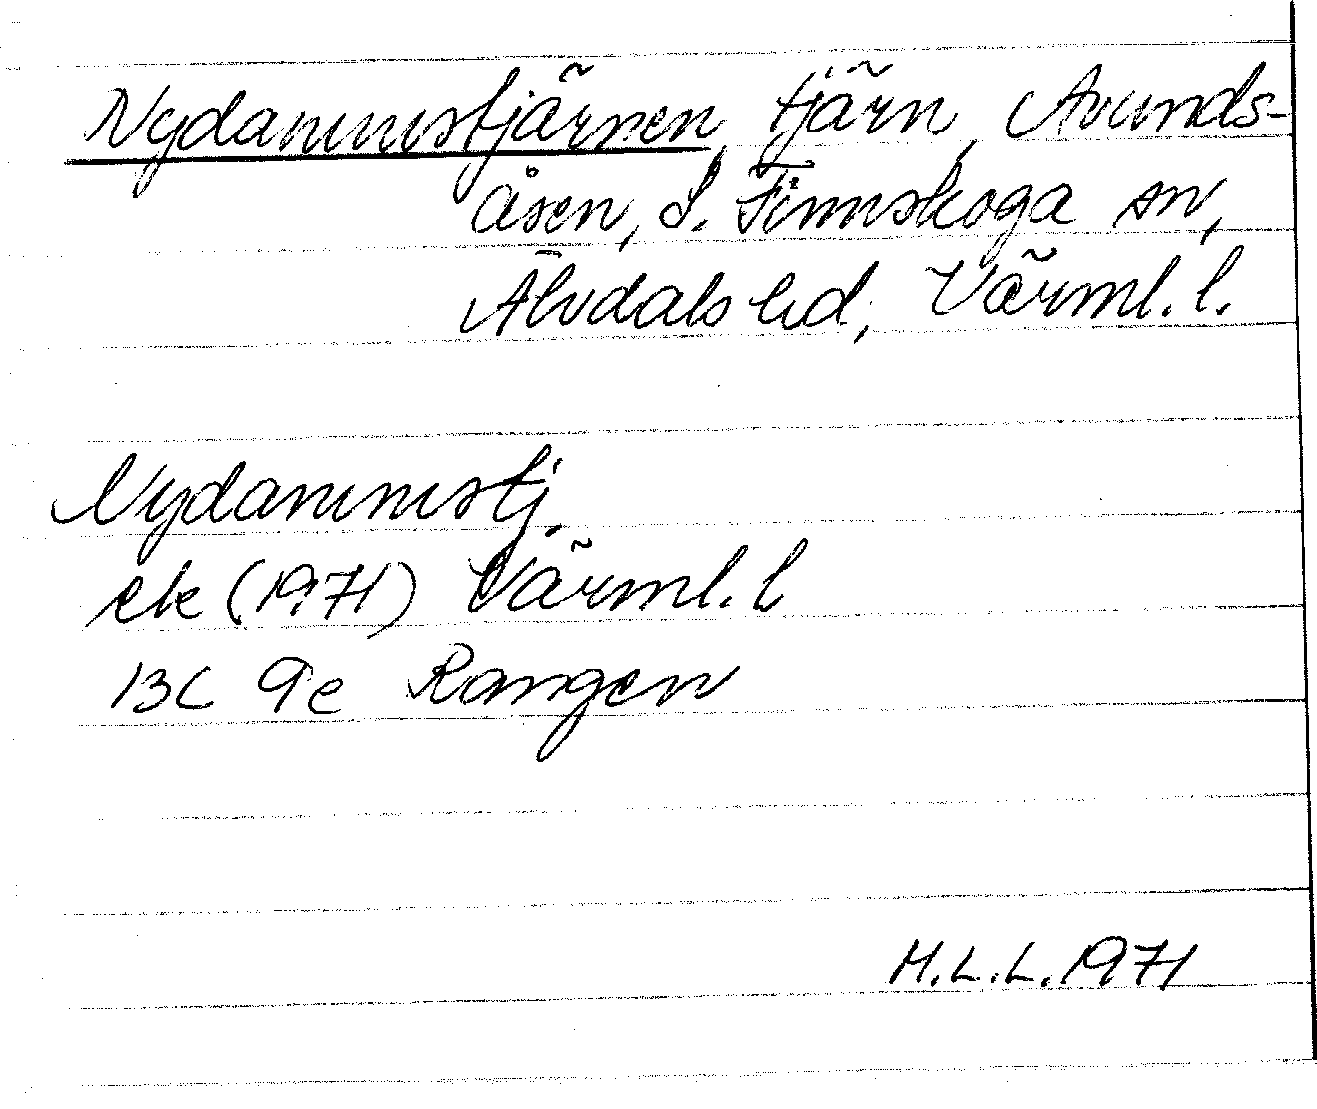 Nydammstjärnen, tjärn, Avunds-
åsen, S. Finnskoga sn,
Älvdals hd, Värml. l.
Nydammstj.
ek (1971) Värml. l
13C 9e Rangen
H.L.L. 1971